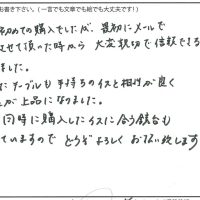 お書き下さい。(一言でも文章でも絵でも大丈夫です!)
初めての購入でしたが、最初にメールで
させて頂いた時から 大変親切で信頼できる
ました。
たテーブルも 手持ちのイスと相性が良く
が上品になりました。
同時に購入したイスに合う
ていますので どうぞよろしく お願い致します